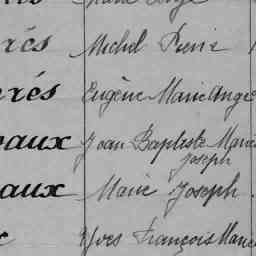 rés Michel Pierre
rés Eugène Marie Ange
eaux Jean Baptiste Marie
Joseph
eaux Marie Joseph
Yves François Marie